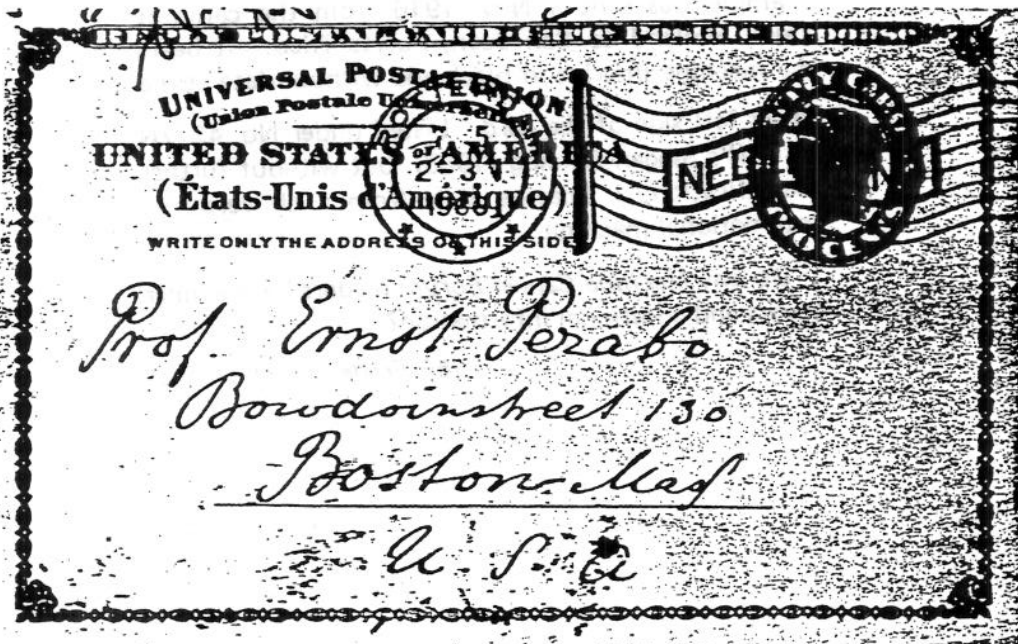 REPLY POSTAL CARD. Carte Postale Reponse
UNIVERSAL POSTAL UNION
(Union Postale Universelle)
UNITED STATES OF AMERICA
(Etats-Unis d'Amérique)
WRITE ONLY THE ADDRESS ON THIS SIDE
5
2-3 N
NED
REPLY CARD
TWO CENTS
Prof. Ernst Perabo
Bowdoinstreet 130
Boston Mass
U. S. A